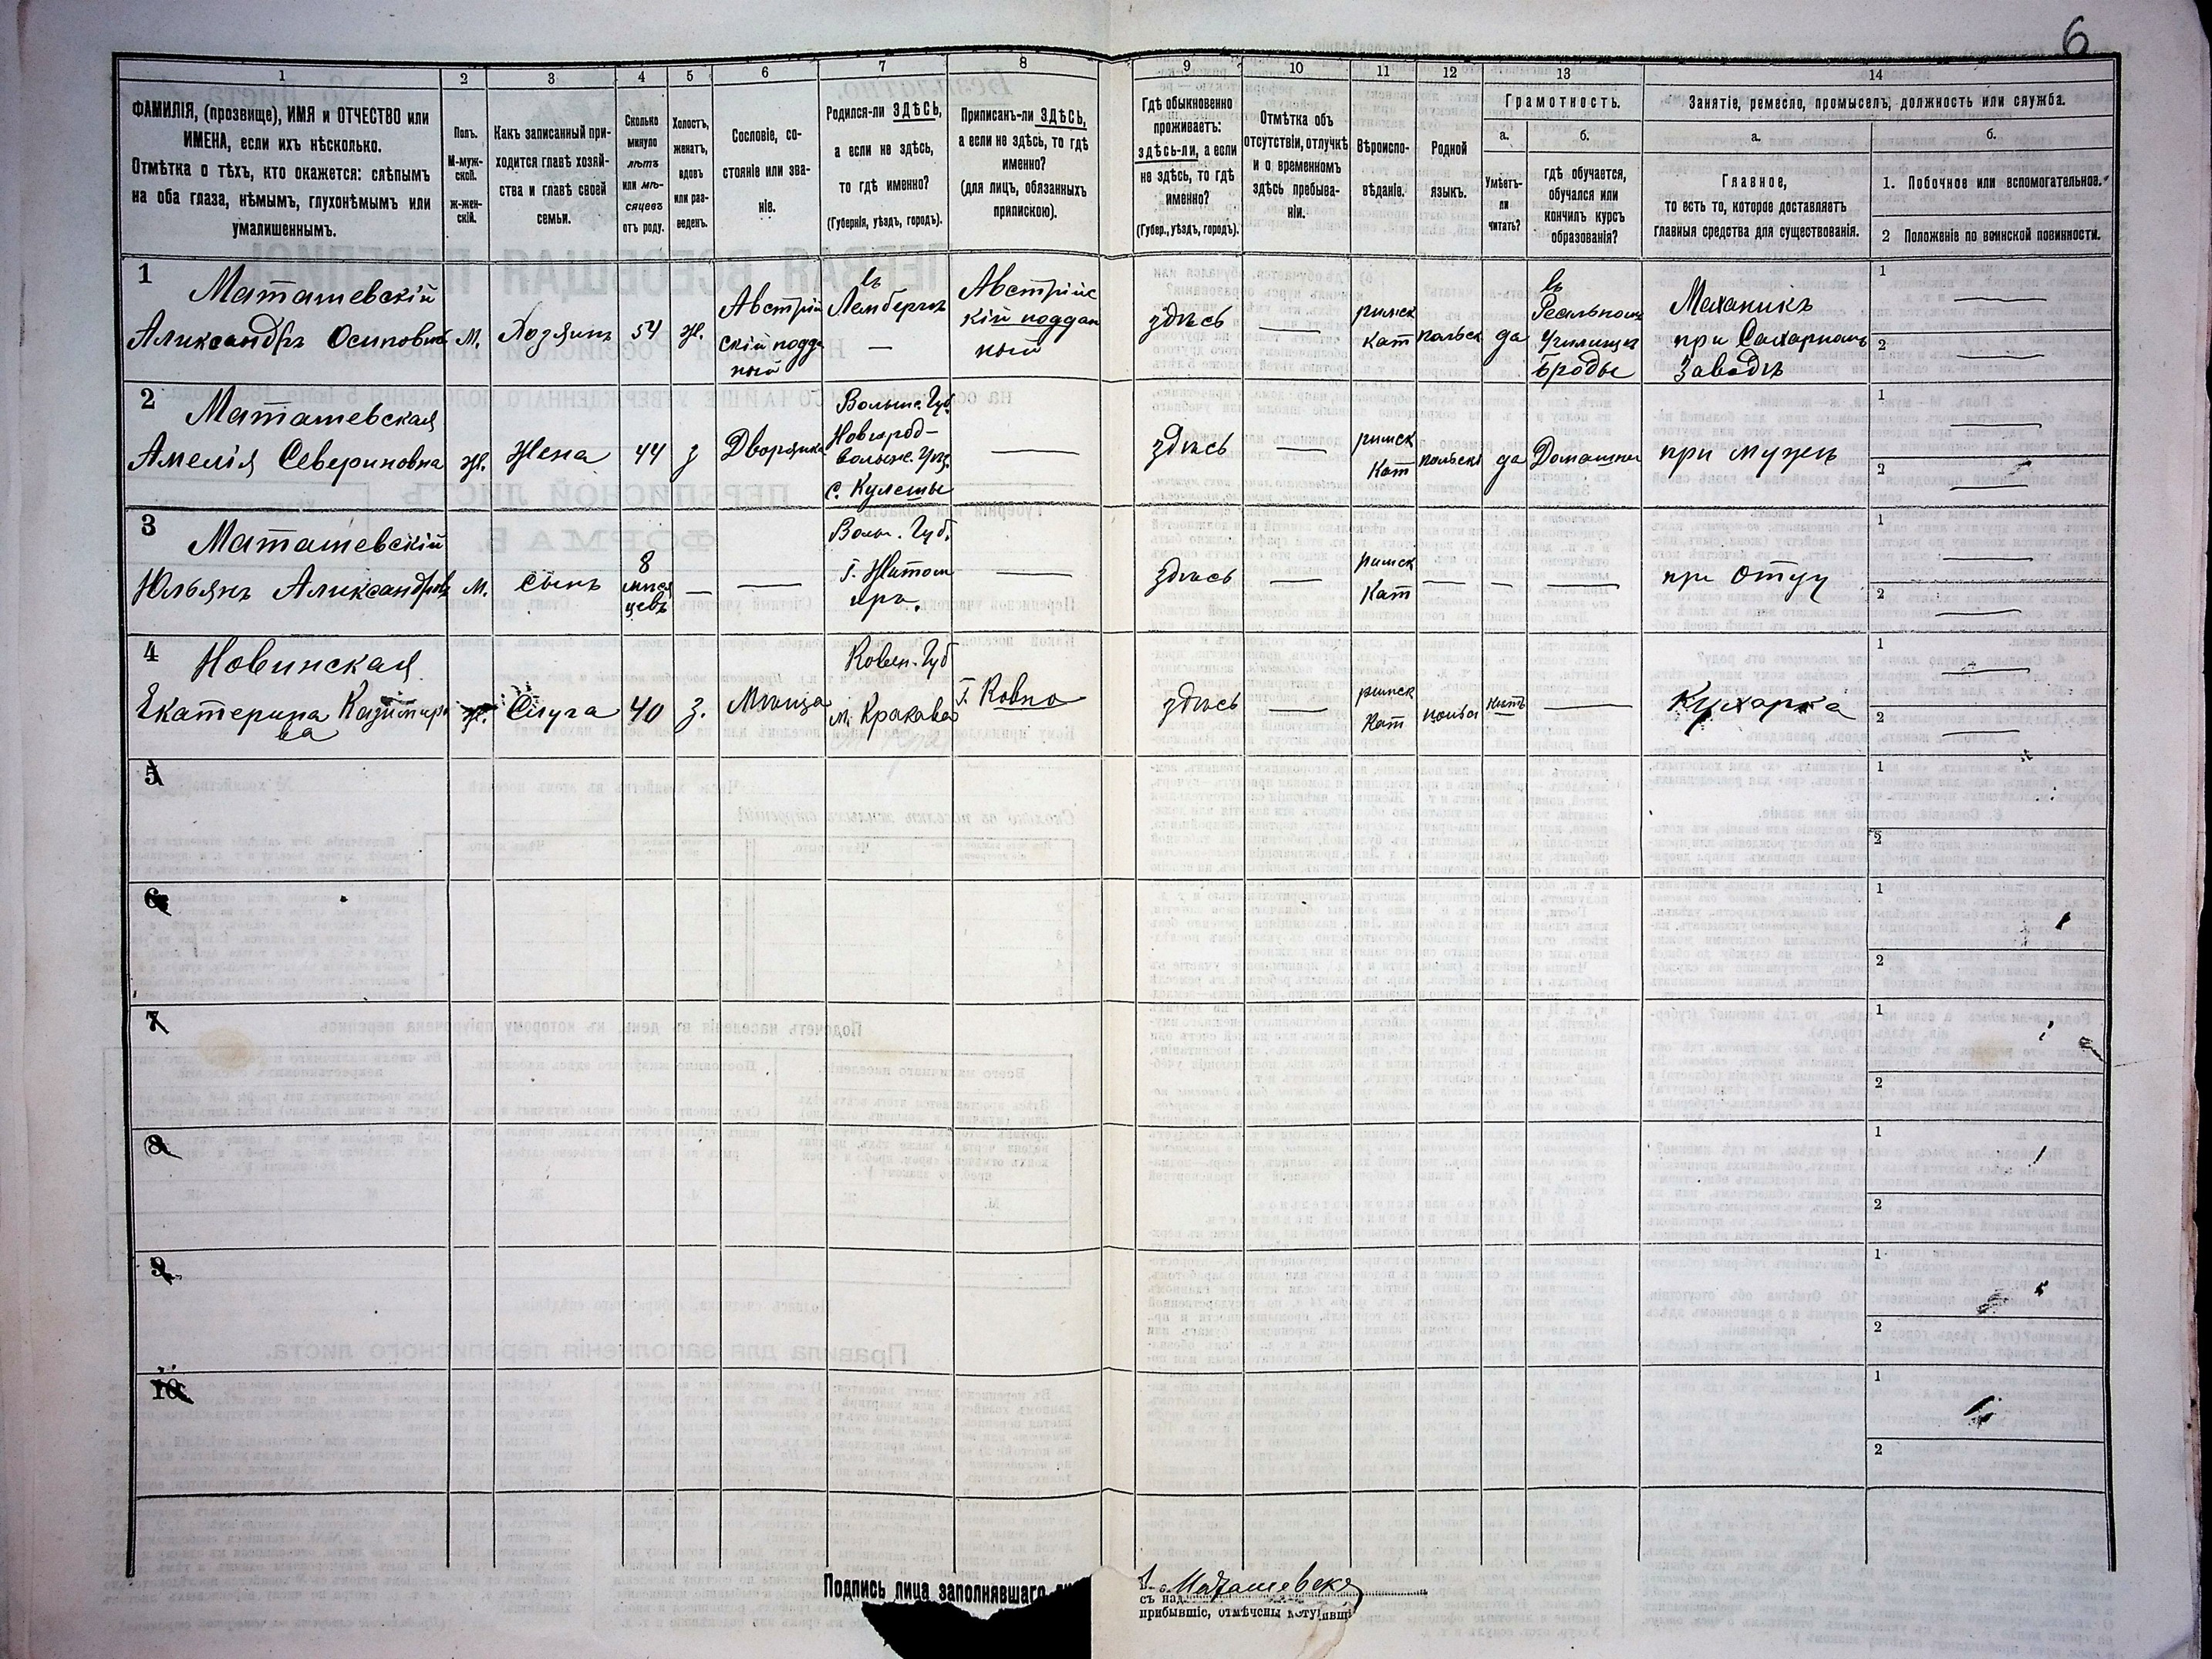 6
1
2
3
4
5
6
7
8
9
10
11
12
13
14
ФАМИЛІЯ, (прозвище), ИМЯ и ОТЧЕСТВО или
ИМЕНА, если ихъ нѣсколько.
Отмѣтка о тѣхъ, кто окажется: слѣпымъ
на оба глаза, нѣмымъ, глухонѣмымъ или
умалишеннымъ.
Полъ.
М-муж-
ской.
ж-жен-
скій.
Какъ записанный при-
ходится главѣ хозяй-
ства и главѣ своей
семьи.
Сколько
минуло
лѣтъ
или мѣ-
сяцевъ
отъ роду.
Холостъ,
женатъ,
вдовъ
или раз-
веденъ.
Сословіе, со-
стояніе или зва-
ніе.
Родился-ли ЗДѢСЬ,
а если не здѣсь,
то гдѣ именно?
(Губернія, уѣздъ, городъ).
Приписанъ-ли ЗДѢСЬ,
а если не здѣсь, то гдѣ
именно?
(для лицъ, обязанныхъ
припискою).
Гдѣ обыкновенно
проживаетъ:
здѣсь-ли, а если
не здѣсь, то гдѣ
именно?
(Губер., уѣздъ, городъ).
Отмѣтка объ
отсутствіи, отлучкѣ
и о временномъ
здѣсь пребыва-
ніи.
Вѣроиспо-
вѣданіе.
Родной
языкъ.
Грамотность.
а.
Умѣетъ-
ли
читать?
б.
гдѣ обучается,
обучался или
кончилъ курсъ
образованія?
Занятіе, ремесло, промыселъ, должность или служба.
а.
Главное,
то есть то, которое доставляетъ
главныя средства для существованія.
б.
1. Побочное или вспомогательное.
2 Положеніе по воинской повинности.
1
Маташевскій
Александръ Осиповичъ
М.
Хозяинъ
54
ж.
Австрій
скій подда
ный
въ
Лембергѣ
—
Австрійс
кій поддан
ный
здѣсь
—
римск
кат
польск
да
въ
Реальномъ
Училищѣ
Броды
Механикъ
при Сахарномъ
Заводѣ
1 —
2 —
2
Маташевская
Амелія Севериновна
ж.
Жена
44
з
Дворянка
Волынс. Губ.
Новгород-
волынс. Уѣз.
с. Кулешы
—
здѣсь
—
римск
Кат
польски
да
Домашнее
при мужѣ
1
2 —
3
Маташевскій
Юльянъ Александровъ
М.
сынъ
8
мѣся
цевъ
—
—
Волын. Губ.
Г. Житом
иръ.
—
здѣсь
—
римск
Кат
—
—
—
при Отцу
1 —
2 —
4
Новинская
Екатерина Казимиро
ва
ж.
Слуга
40
з.
Мѣща
Ковен. Губ
м. Кракава
Г. Ковно
здѣсь
—
римск
Кат
польск
нѣтъ
Кухарка
1 —
2 —
5
1
2
6
1
2
7
1
2
8
1
2
9
1
2
10
1
2
Подпись лица заполнявшаго
Маташевск
съ над
прибывшіе, отмѣчены